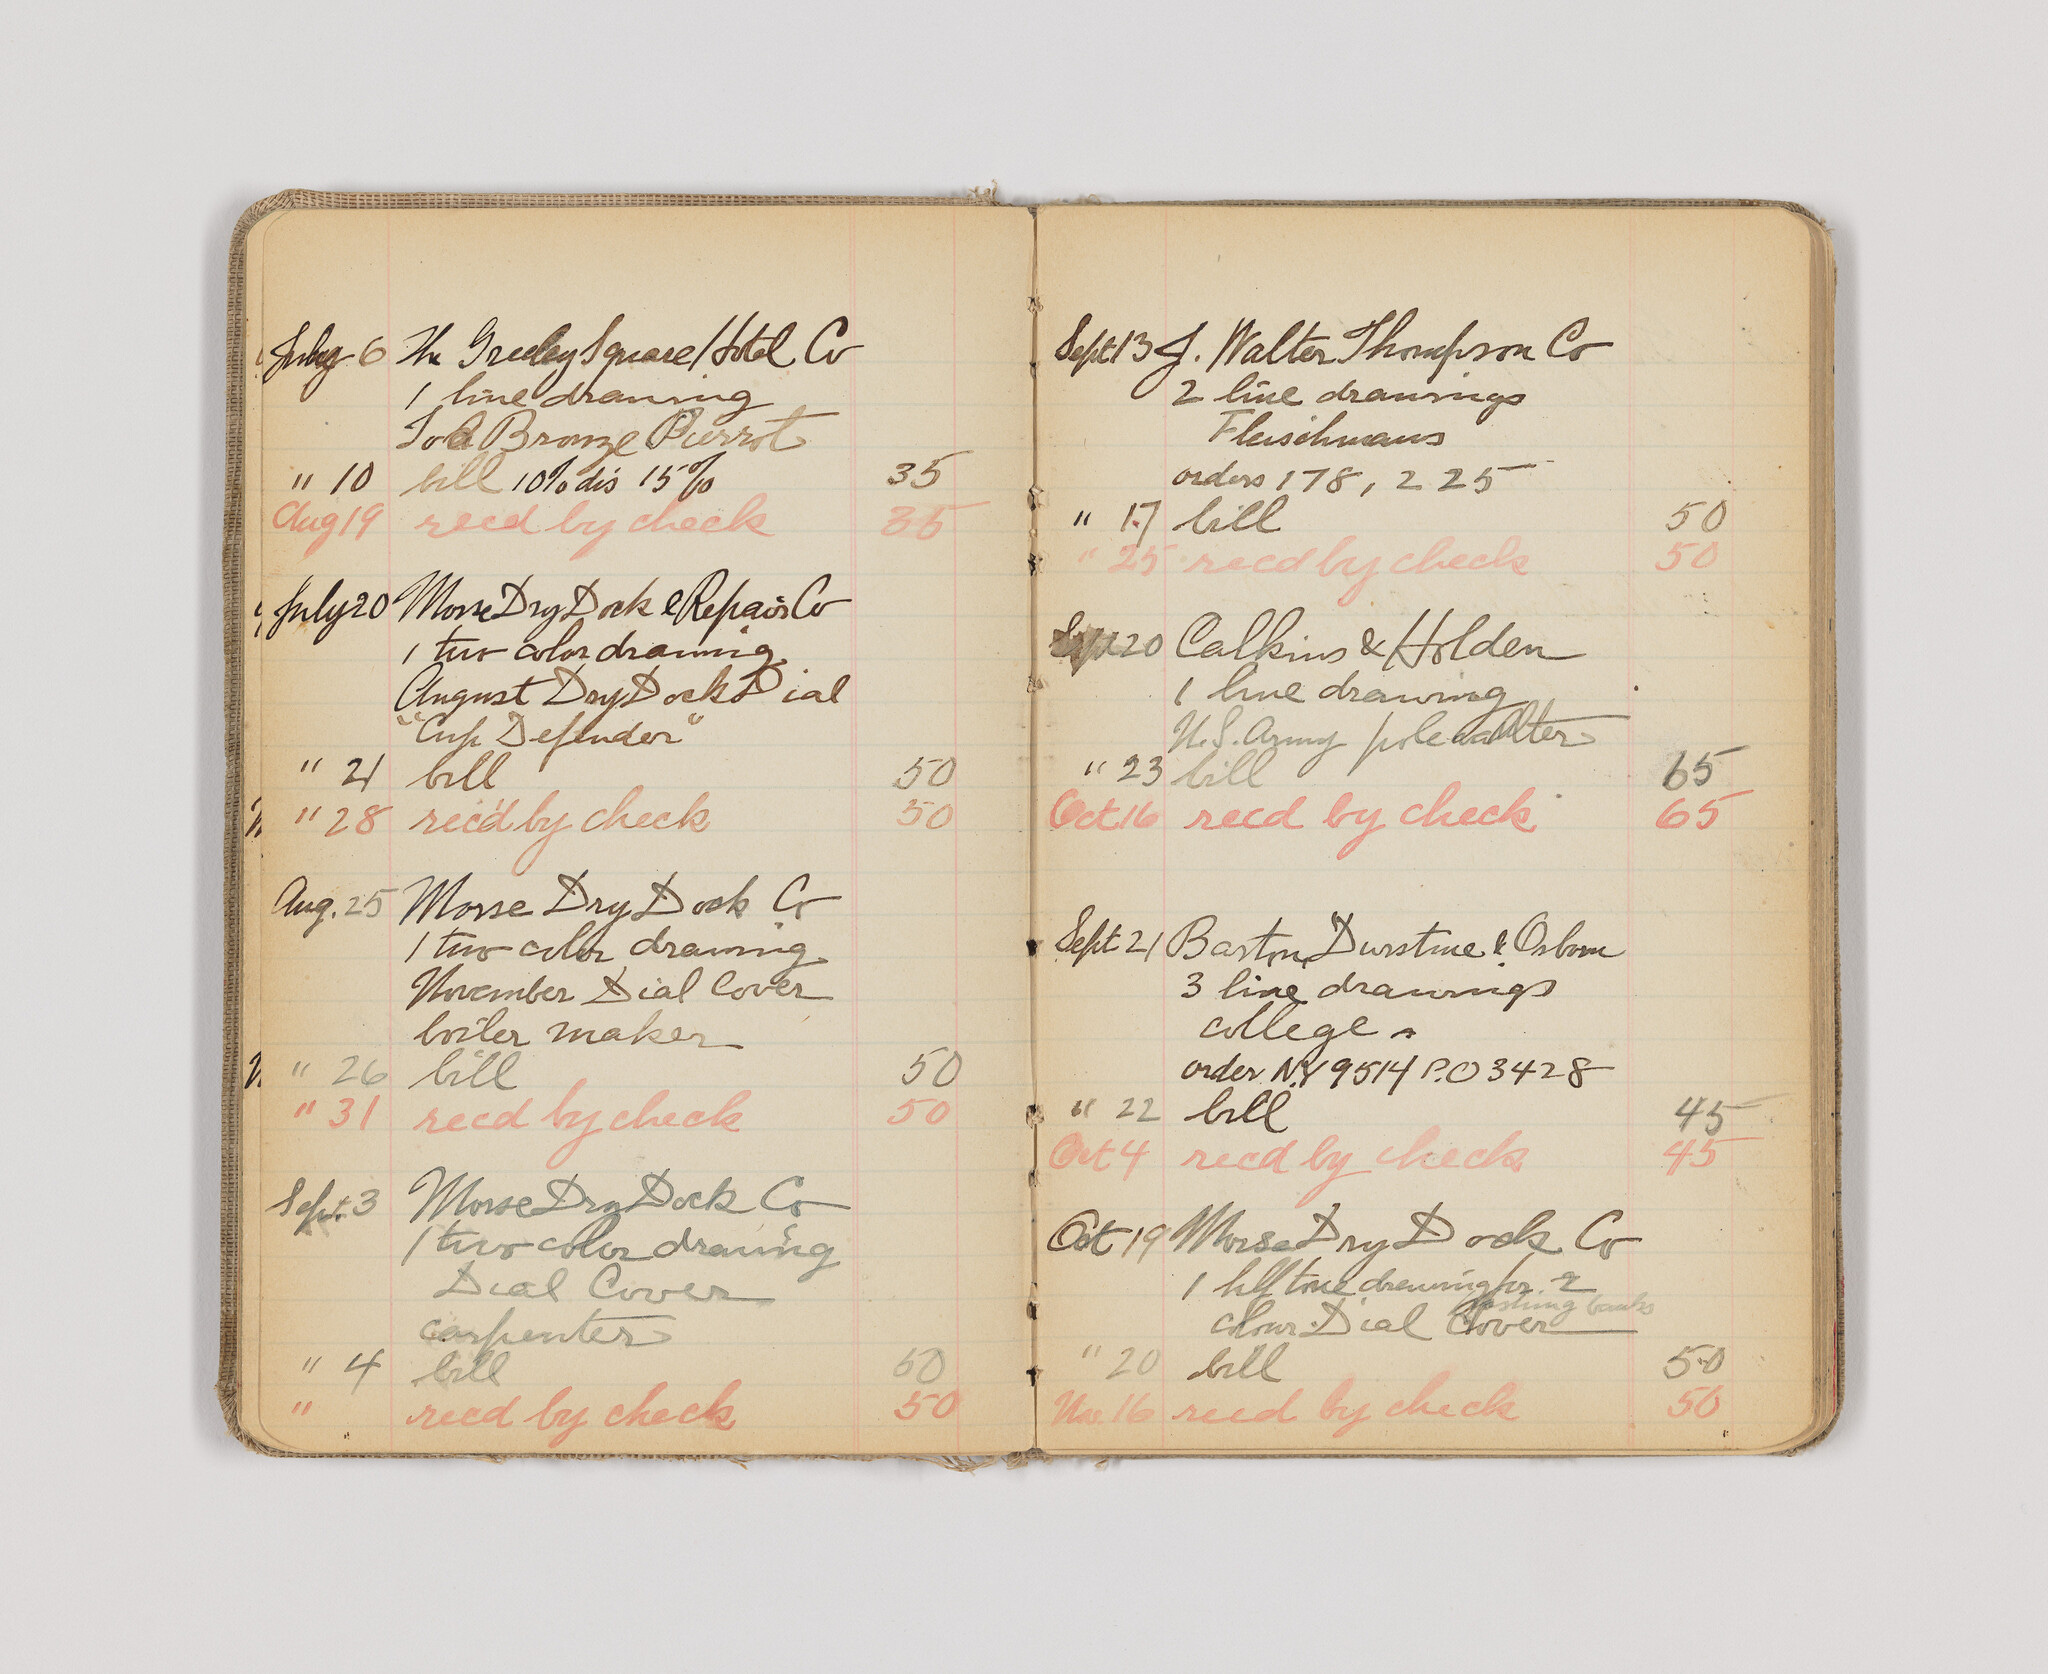 July 6 The Greeley Square Hotel Co
1 line drawing
Bronze Pierrot
" 10 bill 10% dis 15% 35
Aug 19 recd by check 35
July 20 Morse Dry Dock & Repair Co
1 two color drawing
August Dry Dock Dial
"Cup Defender"
" 21 bill 50
" 28 rec'd by check 50
Aug. 25 Morse Dry Dock Co
1 two color drawing
November Dial Cover
boiler maker
" 26 bill 50
" 31 recd by check 50
Sept. 3 Morse Dry Dock Co
1 two color drawing
Dial Cover
carpenter
" 4 bill 50
" recd by check 50
Sept 13 J. Walter Thompson Co
2 line drawings
Fleischmans
orders 178, 225
" 17 bill 50
" 25 recd by check 50
Sept 20 Calkins & Holden
1 line drawing
U.S. Army pole vaulter
" 23 bill 65
Oct 16 recd by check 65
Sept 21 Barton, Durstine & Osborn
3 line drawings
college
order N.Y 9514 P.O 3428
" 22 bill 45
Oct 4 recd by check 45
Oct 19 Morse Dry Dock Co
1 hlf tone drawing for 2
colour Dial Cover
" 20 bill 50
Nov 16 recd by check 50